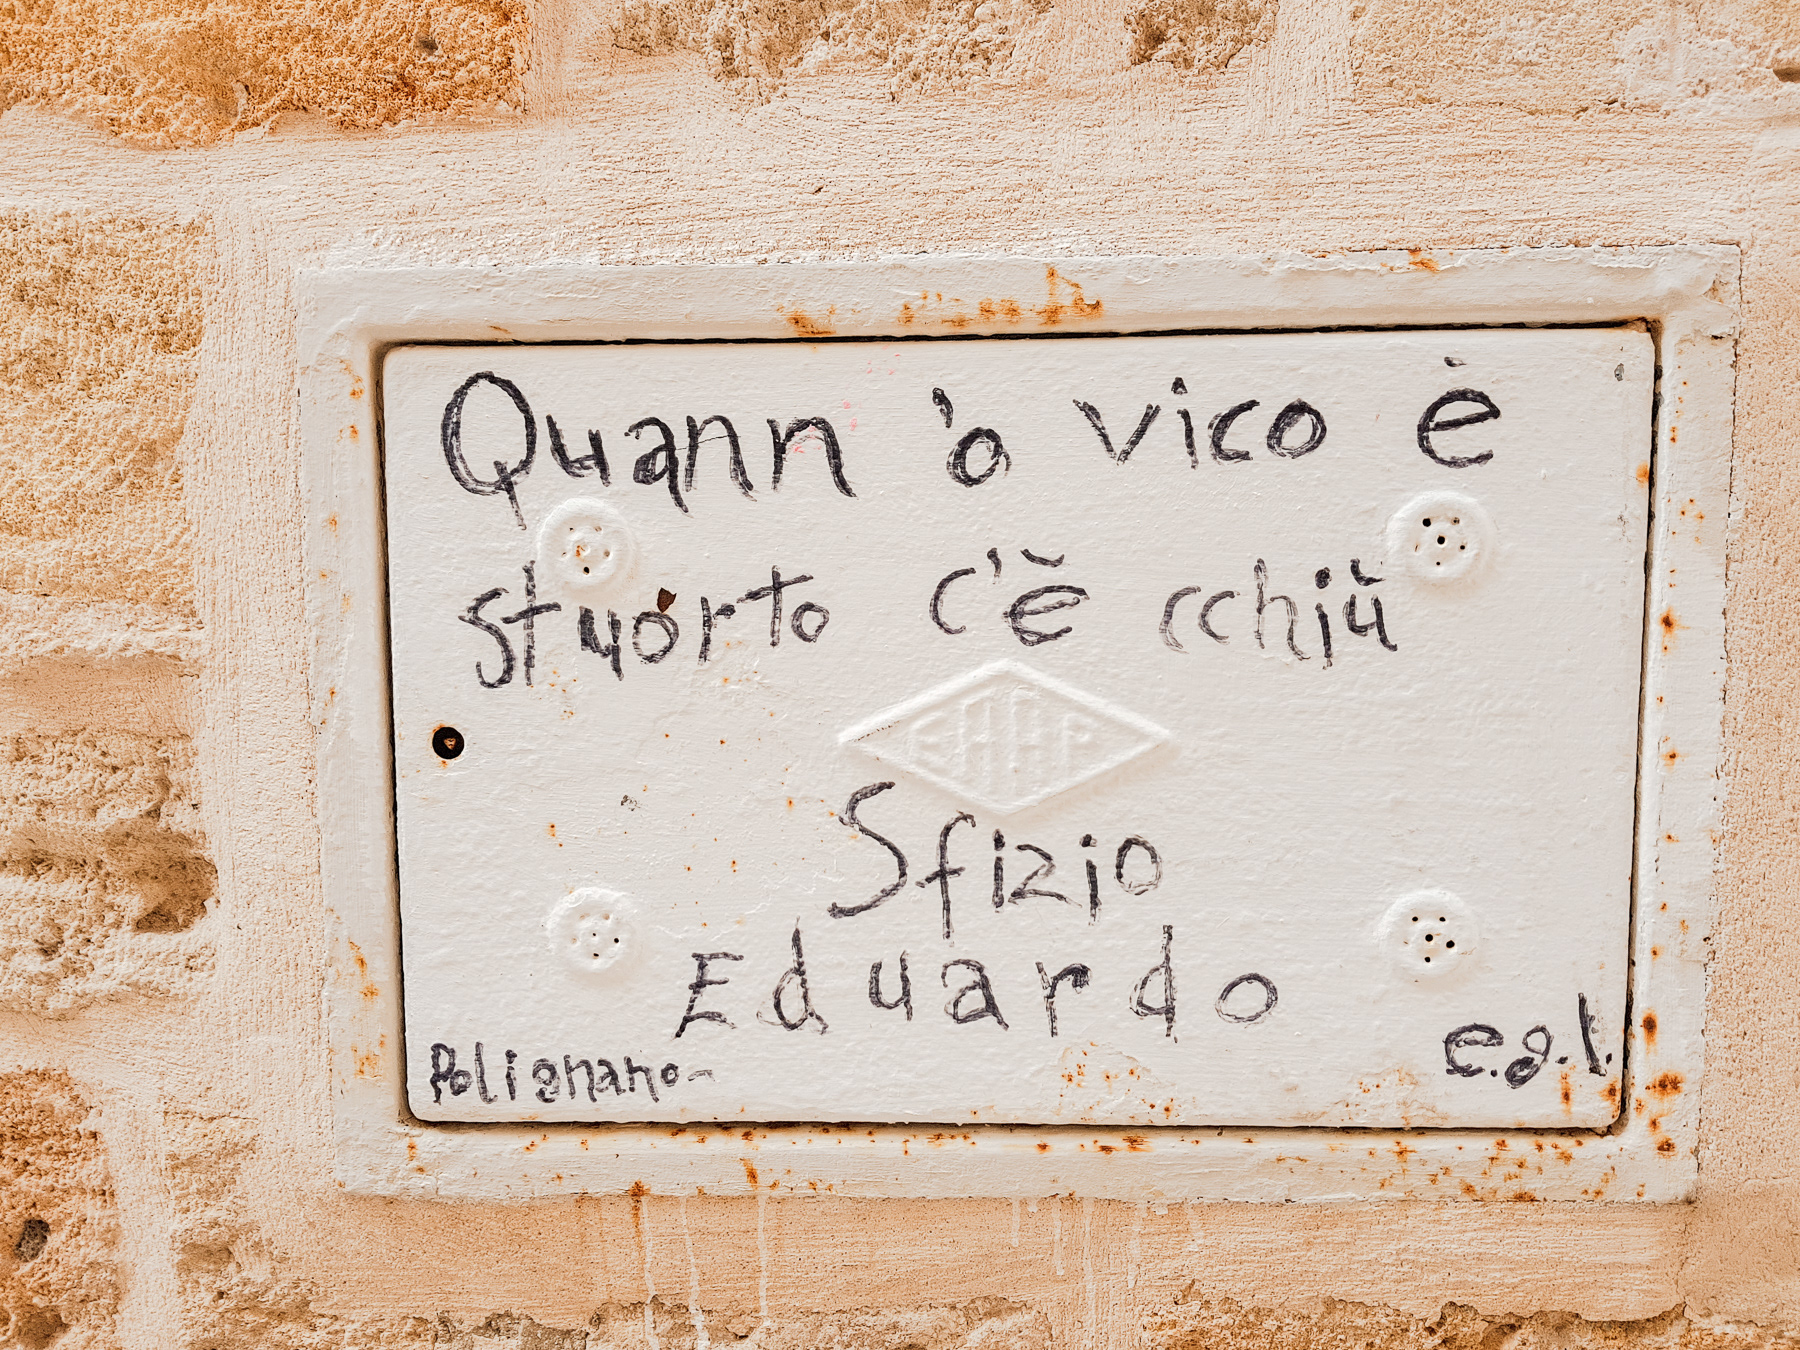 Quann 'o vico è
stuórto c'è cchiù
EAAP
Sfizio
Eduardo
Polignano-
e.g.l.